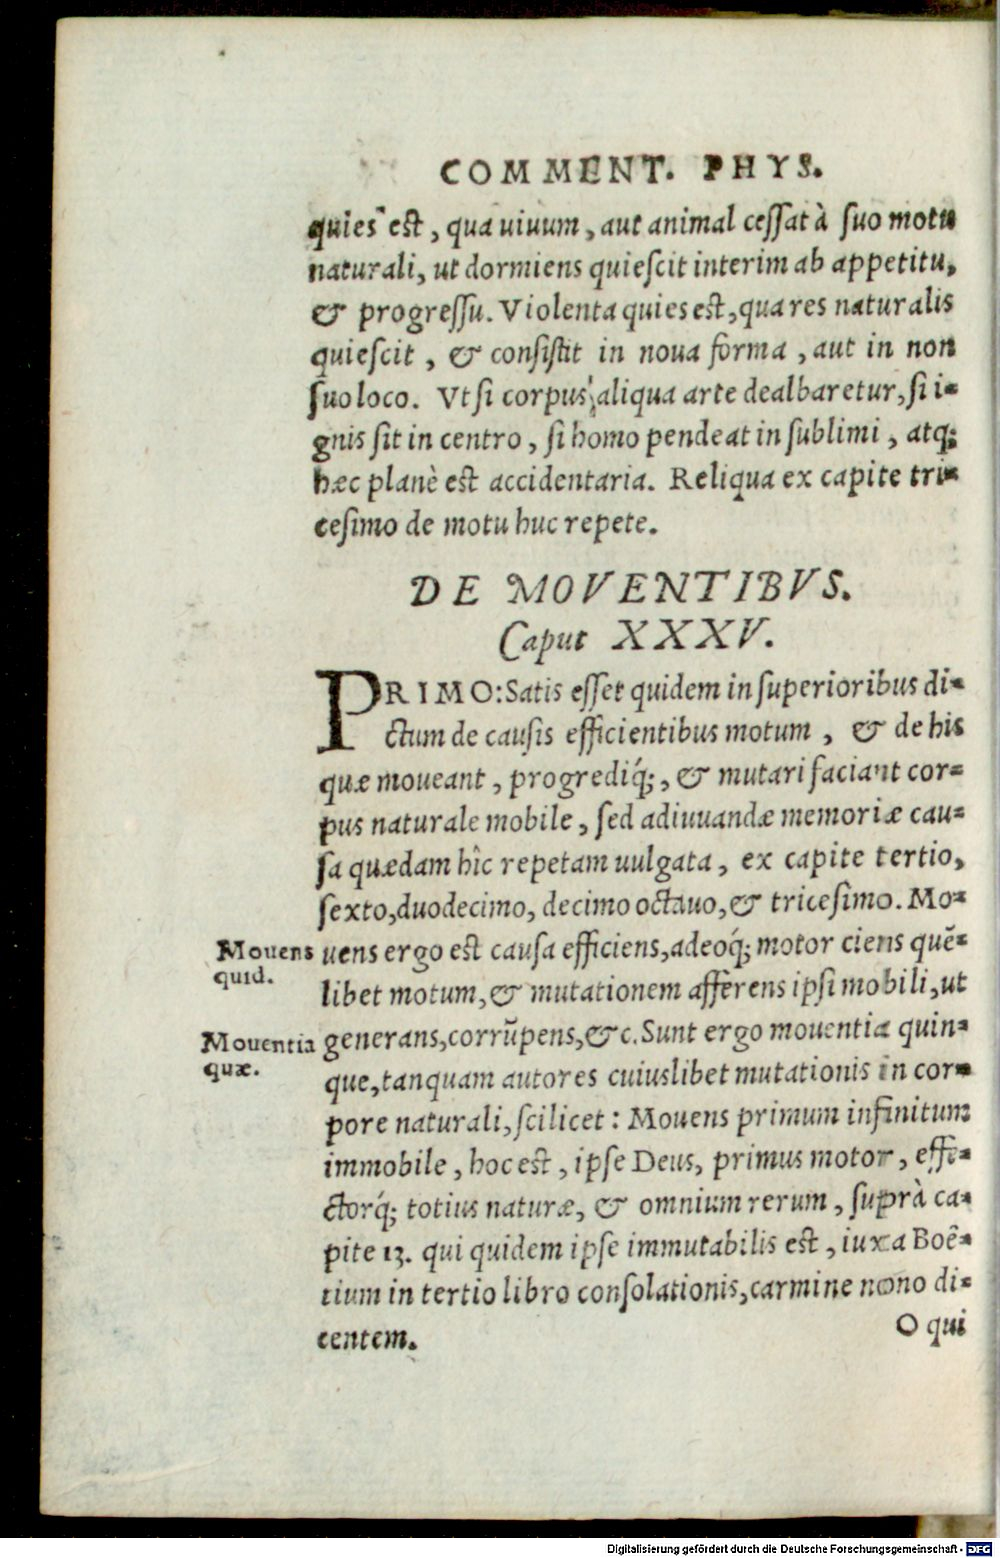 COMMENT. PHYS.
quies est, qua uiuum, aut animal cessat à suo motu
naturali, ut dormiens quiescit interim ab appetitu,
& progressu. Violenta quies est, qua res naturalis
quiescit, & consistit in noua forma, aut in non
suo loco. Vt si corpus aliqua arte dealbaretur, si i-
gnis sit in centro, si homo pendeat in sublimi, atq;
hæc planè est accidentaria. Reliqua ex capite tri-
cesimo de motu huc repete.
DE MOVENTIBVS.
Caput XXXV.
PRIMO: Satis esset quidem in superioribus di-
ctum de causis efficientibus motum, & de his
quæ moueant, progrediq́;, & mutari faciant cor-
pus naturale mobile, sed adiuuandæ memoriæ cau-
sa quædam hîc repetam uulgata, ex capite tertio,
sexto, duodecimo, decimo octauo, & tricesimo. Mo-
Mouens quid.
uens ergo est causa efficiens, adeoq́; motor ciens quē-
libet motum, & mutationem afferens ipsi mobili, ut
Mouentia quæ.
generans, corrūpens, &c. Sunt ergo mouentia quin-
que, tanquam autores cuiuslibet mutationis in cor-
pore naturali, scilicet: Mouens primum infinitum
immobile, hoc est, ipse Deus, primus motor, effe-
ctorq́; totius naturæ, & omnium rerum, suprà ca-
pite 13. qui quidem ipse immutabilis est, iuxta Boê-
tium in tertio libro consolationis, carmine nono di-
centem.
O qui
Digitalisierung gefördert durch die Deutsche Forschungsgemeinschaft - DFG